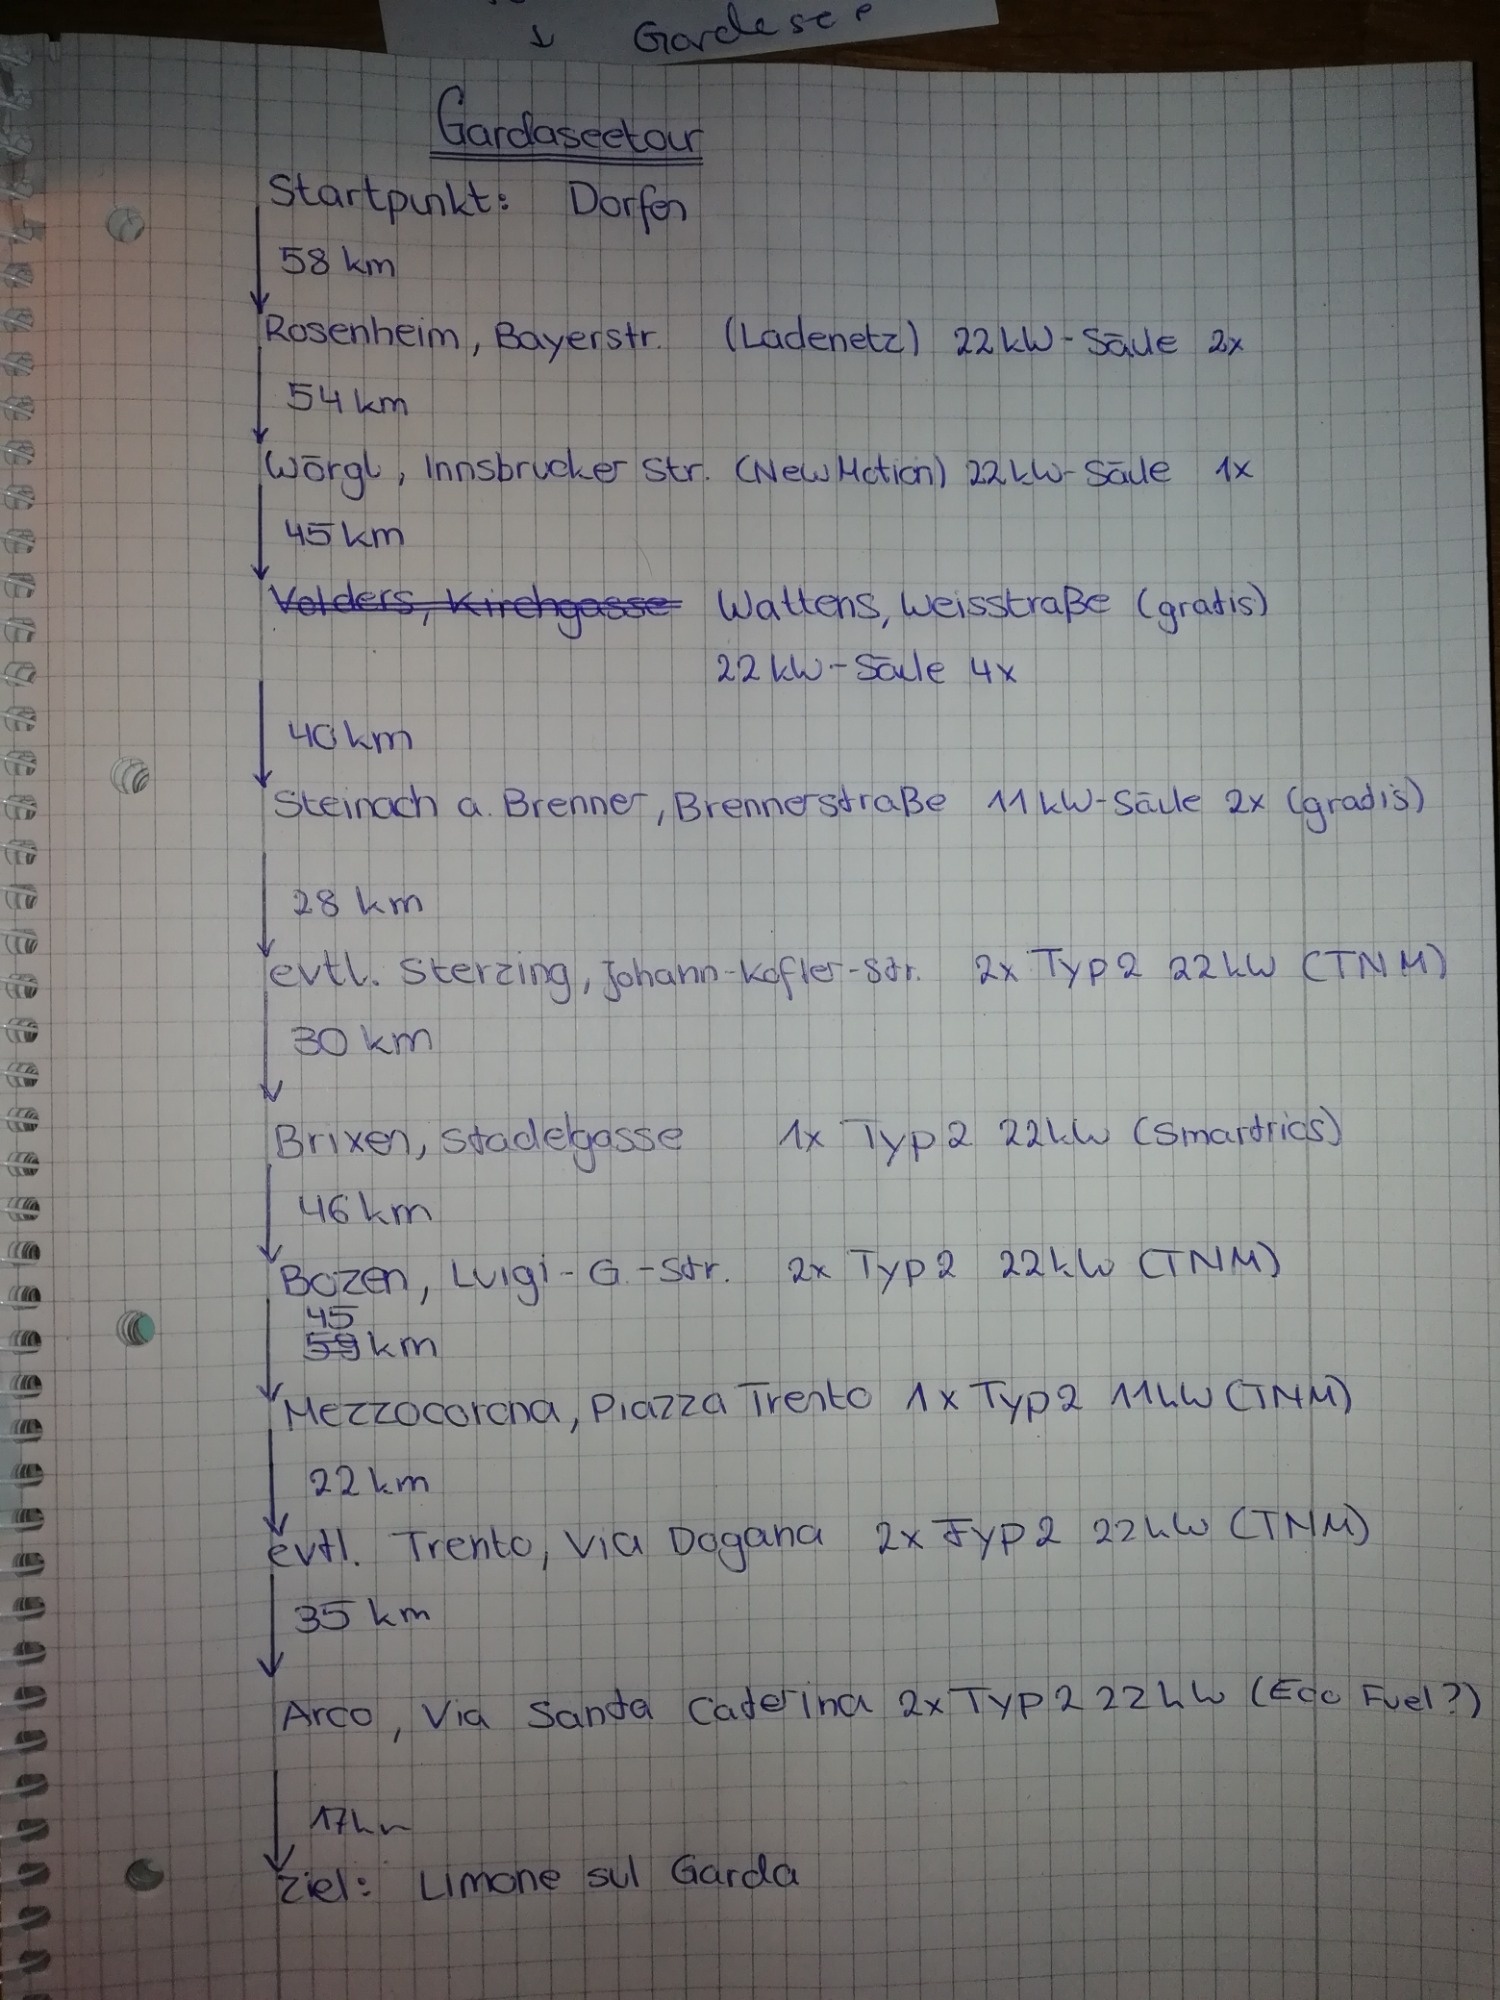 ↓ Gardasee
Gardaseetour
Startpunkt: Dorfen
58 km
Rosenheim, Bayerstr. (Ladenetz) 22 kW-Säule 2x
54 km
Wörgl, Innsbrucker Str. (New Motion) 22 kW-Säule 1x
45 km
Volders, Kirchgasse Wattens, Weisstraße (gratis)
22 kW-Säule 4x
40 km
Steinach a. Brenner, Brennerstraße 11 kW-Säule 2x (gratis)
28 km
evtl. Sterzing, Johann-Kofler-Str. 2x Typ 2 22 kW (TNM)
30 km
Brixen, Stadelgasse 1x Typ 2 22 kW (Smartrics)
46 km
Bozen, Luigi-G.-Str. 2x Typ 2 22 kW (TNM)
45
59 km
Mezzocorona, Piazza Trento 1x Typ 2 11 kW (TNM)
22 km
evtl. Trento, Via Dogana 2x Typ 2 22 kW (TNM)
35 km
Arco, Via Santa Caterina 2x Typ 2 22 kW (Eco Fuel?)
17 km
Ziel: Limone sul Garda